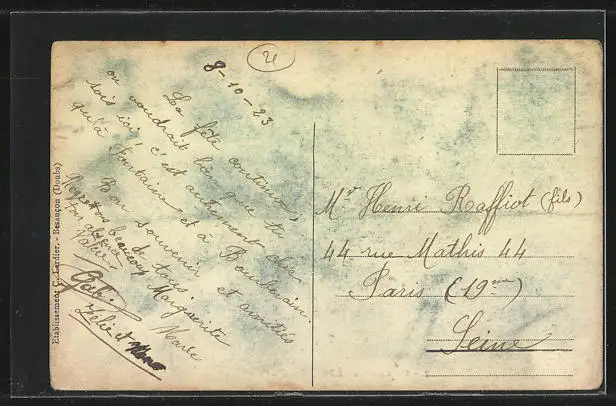 21
8-10-23
La fête continue,
on voudrait bien que tu
sois ici, c'est autrement chic
qu'à Fontaine et à
Bon souvenir et amitiés
de tous.
Marguerite
Marie
Regrettons beaucoup
ton absence
Gabi
Etablissement C. Lardier, - Besançon (Doubs)
Mr Henri Raffiot (fils)
44 rue Mathis 44
Paris (19me)
Seine